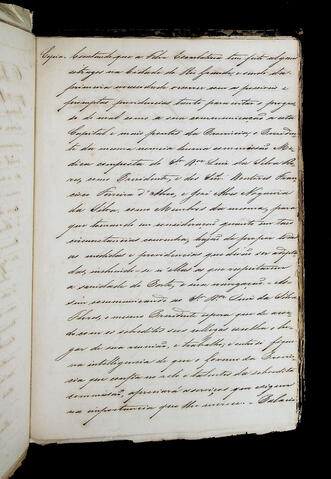 Copia. Constando que a Febre Escarlatina tem feito alguns
estragos na Cidade do Rio Grande, e sendo da
primeira necessidade occorrer com as precisas e
promptas providencias tanto para evitar o progres
so do mal como a sua communicação a esta
Capital e mais pontos da Provincia, o Preziden
te da mesma nomeia huma commissão Me
dica composta do Sr. Dor. Luis da Silva Flo
res, como Prezidente, e dos Snrs.
Ferreira d'Abreu, e José Alves Nogueira
da Silva, como Membros da mesma, para
que tomando em consideração quanto em taes
circunstancias convenha, hajão de propor todas
as medidas e providencias que devão ser adopta
das, incluindo-se as que respeitarem
a sanidade do Porto, e sua navegação. As
sim communicando ao Sr. Dor. Luis da Silva
Flores, o mesmo Prezidente espera que de acor
do com os seus collegas escolha o lu
gar de sua reunião, e trabalho, e outro sim
na intelligencia de que o Governo da Provin
cia que confia no zelo e talentos da sobredita
commissão, apreciará os serviços que exigem
na importancia que lhe merece. Palacio